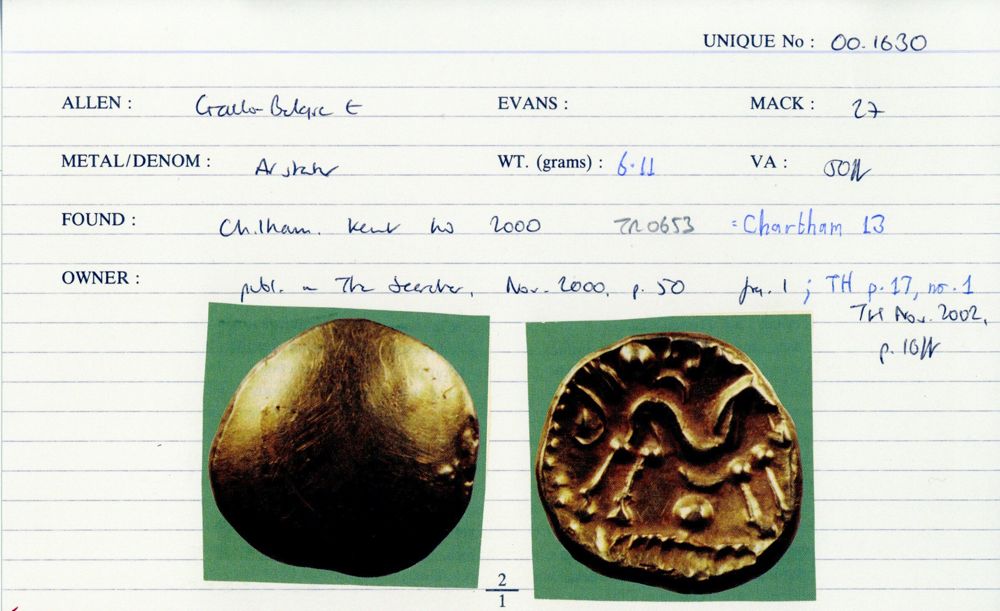 UNIQUE No : 00.1630
ALLEN : Gallo-Belgic E EVANS : MACK : 27
METAL/DENOM : AV stater WT. (grams) : 6.11 VA : 50ff
FOUND : Chilham. Kent 2000 TR0653 = Chartham 13
OWNER : publ. in The Searcher, Nov. 2000, p. 50 fig. 1 ; TH p. 17, no. 1
TH Nov. 2002,
p. 16ff
2
1